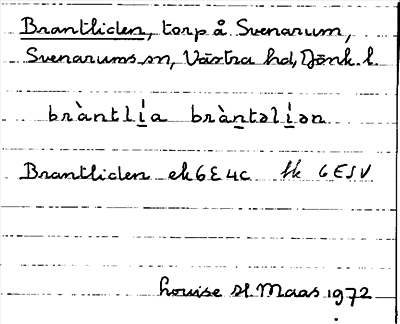 Brantliden, torp å Svenarum,
Svenarums sn, Västra hd, Jönk. l.
bràntl<u>í</u>a brà<u>n</u>təl<u>í</u>ən
Brantliden ek 6E4c fk 6E SV
Louise H. Maas 1972